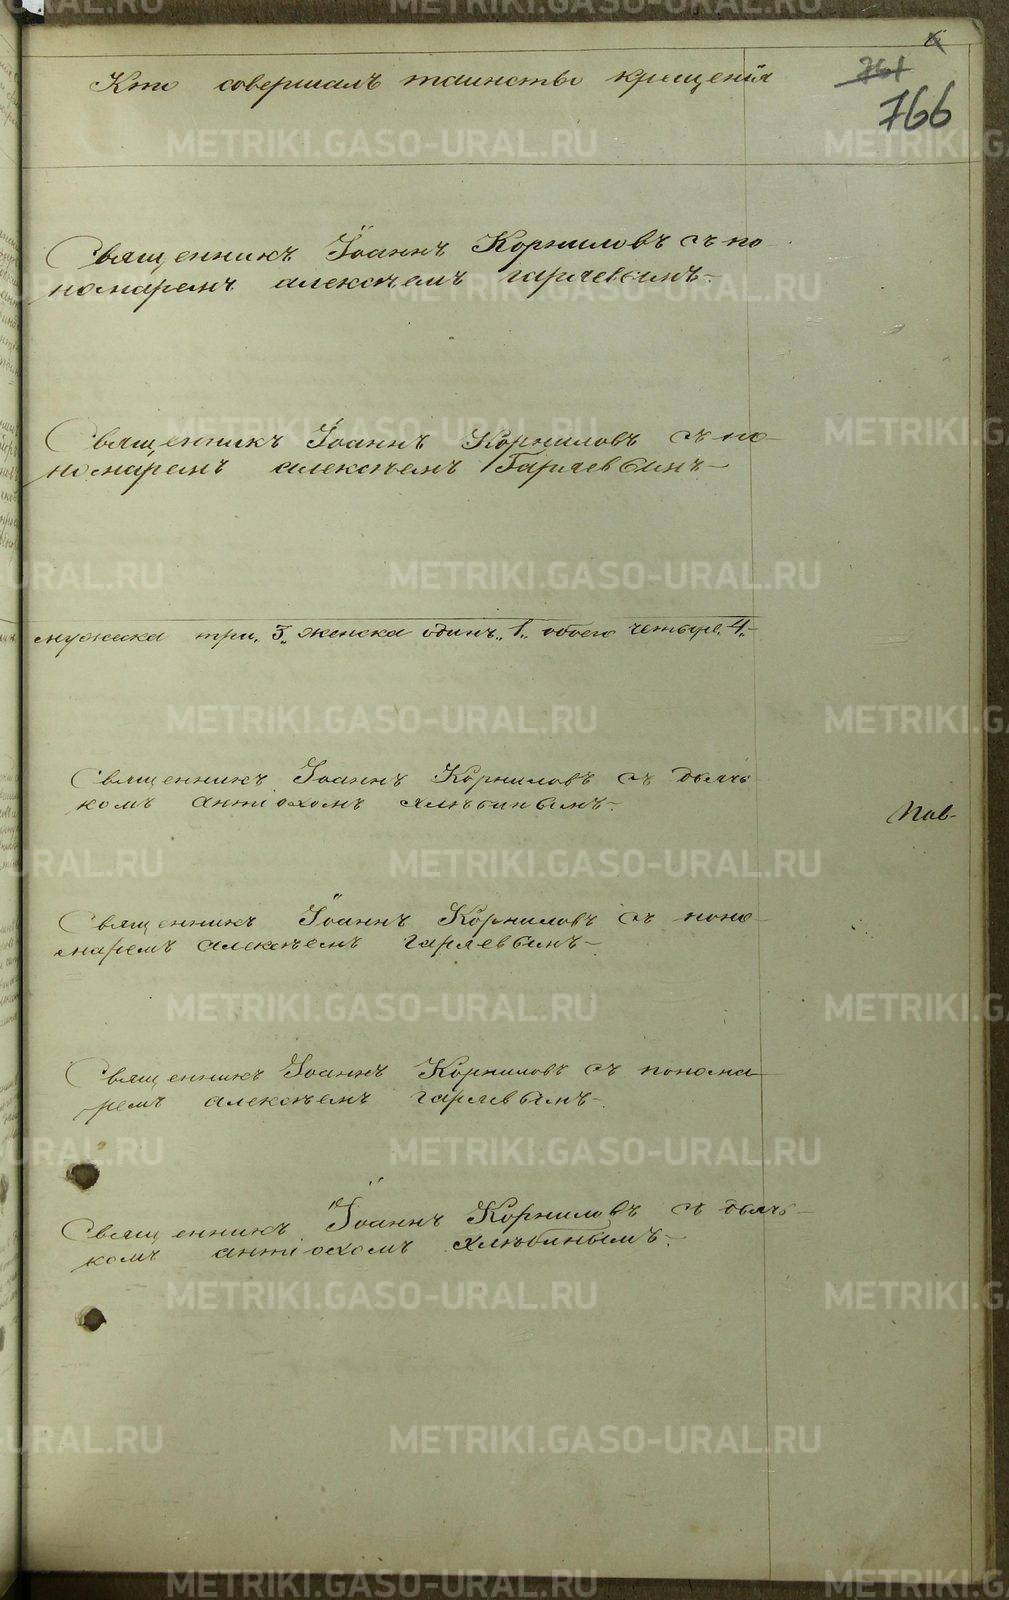 6
Кто совершалъ таинство крещенія
761
766
Священникъ Іоаннъ Корниловъ съ по-
номаремъ алексѣемъ гаряевымъ.-
Священникъ Іоаннъ Корниловъ съ по-
номаремъ алексѣемъ Гаряевымъ-
мужска три. 3. женска одинъ. 1. обоего четыре. 4.-
Священникъ Іоаннъ Корниловъ съ дьяч-
комъ антіохомъ хлѣбинымъ.-
Пов-
Священникъ Іоаннъ Корниловъ съ поно-
маремъ алексѣемъ гаряевымъ-
Священникъ Іоаннъ Корниловъ съ понома-
ремъ алексѣемъ гаряевымъ-
Священникъ Іоаннъ Корниловъ съ дьяч-
комъ антіохомъ хлѣбинымъ.-
METRIKI.GASO-URAL.RU